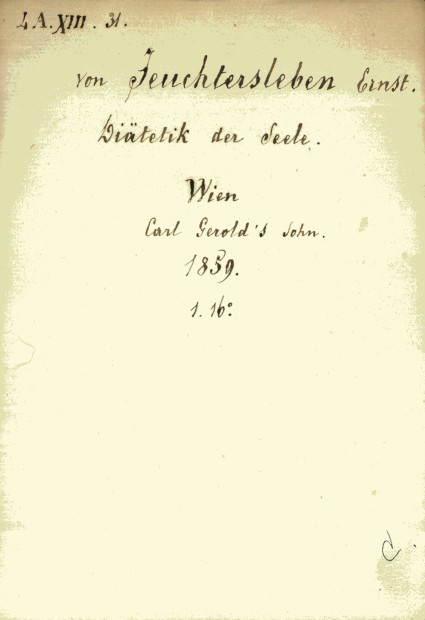 LA.XIII. 31.
von Feuchtersleben Ernst.
Diätetik der Seele.
Wien
Carl Gerold's Sohn.
1859.
1. 16°